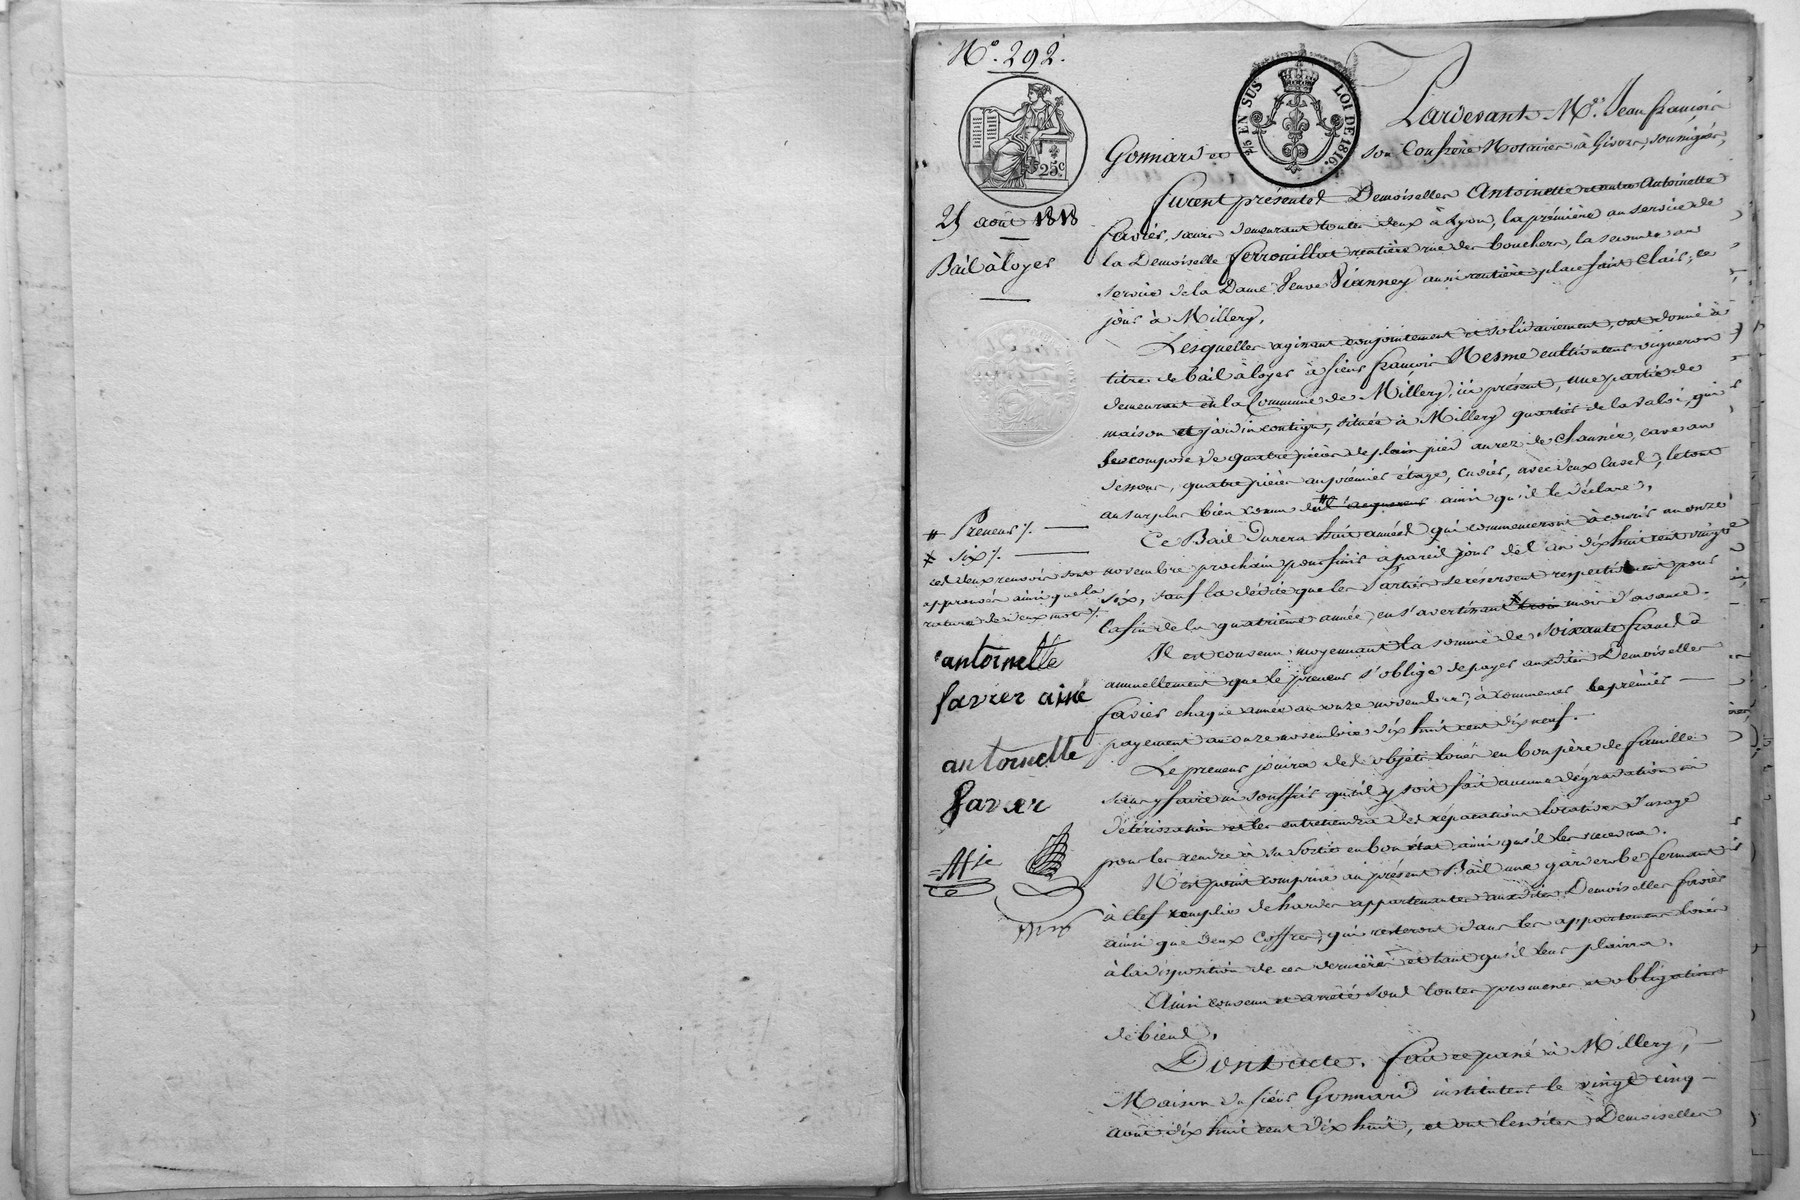 N.° 292.
¼ EN SUS LOI DE 1816.
25.c
25 août 1818
Bail à loyer
Pardevant M.es Jean françois
Gonnard et son Confrère Notaires à Givors, soussignés,
furent présentes Demoiselles Antoinette et autre Antoinette
favier, sœurs demeurant toutes deux à Lyon, la première au service de
la Demoiselle ferrouillat rentière rue des bouchers, la seconde au
service de la Dame Veuve Vianney aussi rentière place saint Clair, ce
jour à Millery,
Lesquelles agissant conjointement et solidairement, ont donné à
titre de bail à loyer à sieur françois Nesme cultivateur vigneron
demeurant en la Commune de Millery, ici présent, une partie de
maison et jardin contigu, située à Millery quartier de la valoi, qui
se compose de quatre pièces de plein pied au rez de chaussée, cave au
dessous, quatre pièces au premier étage, cuvier, avec deux la tout
au surplus bien connu du # acquereur ainsi qu'il le déclare.
Ce Bail durera huit années qui commenceront à courir au onze
novembre prochain pour finir à pareil jour de l'an dix huit cent vingt
six, sauf la dédite que les Parties se réservent respectivement pour
la fin de la quatrième année, en s'avertissant trois mois d'avance.
Il est convenu moyennant la somme de soixante francs
annuellement que le preneur s'oblige de payer auxdites Demoiselles
favier chaque année au onze novembre, à commencer le premier
payement au onze novembre dix huit cent dix neuf.
Le preneur jouira des objets loués en bon père de famille
sans y faire ni souffrir qu'il y soit fait aucune dégradation ni
détérioration et les entretiendra des réparations locatives d'usage
pour les rendre à sa sortie en bon état ainsi qu'il les recevra.
N'est point comprise au présent Bail une garderobe fermant
à clef remplie de hardes appartenantes auxdites Demoiselles favier
ainsi que deux coffres, qui resteront dans les appartemens loués
à la disposition de ces dernières et tant qu'il leur plaira.
Ainsi convenu et arrêté sous toutes promesses et obligations
de biens.
Dont acte, fait et passé à Millery,
Maison du sieur Gonnard instituteur le vingt cinq
août dix huit cent dix huit, et ont lesdites Demoiselles
# Preneur /.
x six /.
ces deux renvois sont
approuvés ainsi que la
rature de deux mots /.
antoinette
favier ainé
antoinette
favier